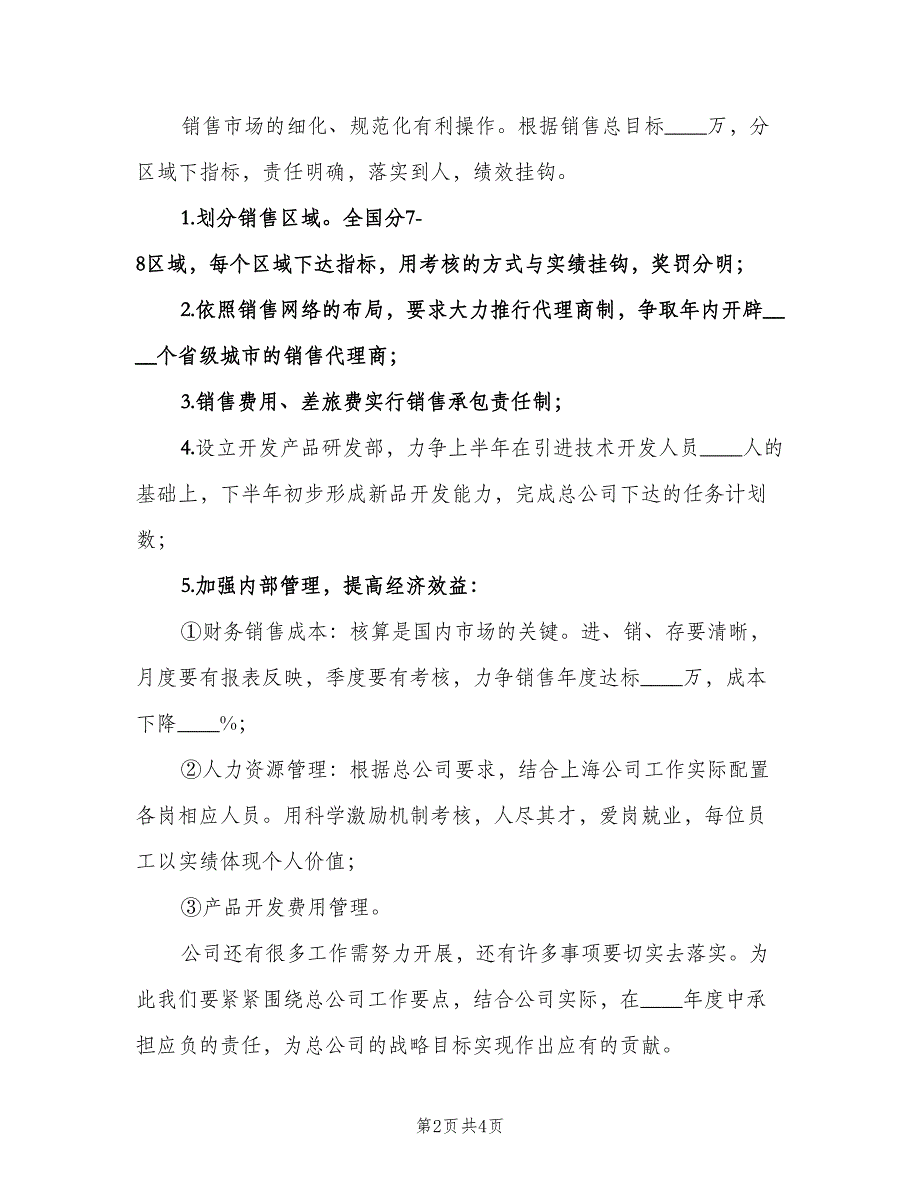 销售市场的细化、规范化有利操作。根据销售总目标____万，分
区域下指标，责任明确，落实到人，绩效挂钩。
1.划分销售区域。全国分7-
8区域，每个区域下达指标，用考核的方式与实绩挂钩，奖罚分明；
2.依照销售网络的布局，要求大力推行代理商制，争取年内开辟__
__个省级城市的销售代理商；
3.销售费用、差旅费实行销售承包责任制；
4.设立开发产品研发部，力争上半年在引进技术开发人员____人的
基础上，下半年初步形成新品开发能力，完成总公司下达的任务计划
数；
5.加强内部管理，提高经济效益：
①财务销售成本：核算是国内市场的关键。进、销、存要清晰，
月度要有报表反映，季度要有考核，力争销售年度达标____万，成本
下降____%；
②人力资源管理：根据总公司要求，结合上海公司工作实际配置
各岗相应人员。用科学激励机制考核，人尽其才，爱岗兢业，每位员
工以实绩体现个人价值；
③产品开发费用管理。
公司还有很多工作需努力开展，还有许多事项要切实去落实。为
此我们要紧紧围绕总公司工作要点，结合公司实际，在____年度中承
担应负的责任，为总公司的战略目标实现作出应有的贡献。
第2页共4页